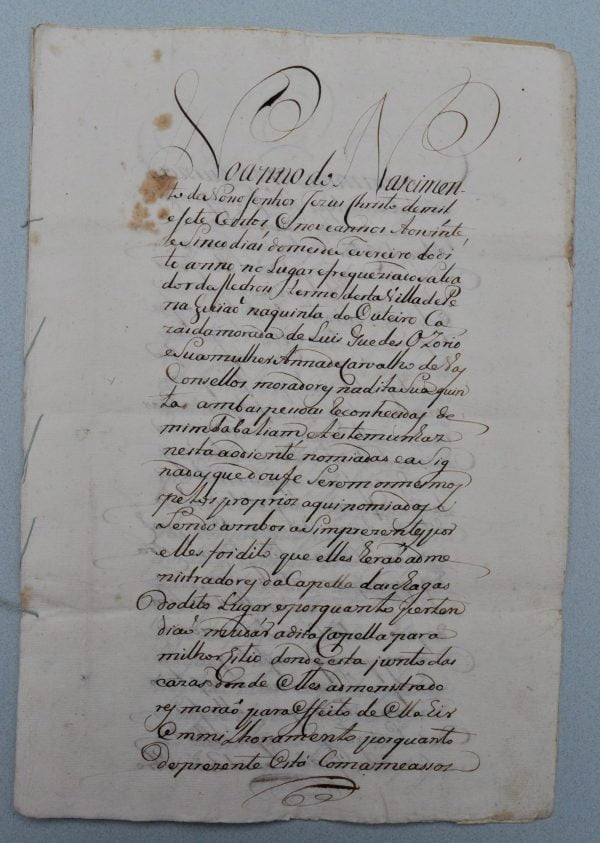 No anno do Nascimen-
to de Noso Senhor Jezus Christo de mil
e sete Centos e nove annos Aos vinte
e Sinco dias do mes de Fevereiro do di
to anno no Lugar e freguezia de Salva
dor da termo desta Villa de Pe
na na quinta do Outeiro Ca
zas da morada de Luis Guedes Ozorio
e Sua mulher Anna de Carvalho de Vas
Consellos moradores na dita Sua quin
ta ambas pesoas Reconhecidas de
mim Tabaliam e testemunhas
nesta ao diente nomiadas e a Sig
nadas que dou fe Serem os mesmos
pellos proprios aqui nomiados e
Sendo ambos a Sim prezentes por
elles foi dito que elles herão adme
nistradores da Capella das Chagas
Do dito Lugar e porquanto perten
dião mudar a dita Capella para
milhor Sitio donde esta junto das
cazas donde Elles admenistrado
res morão para Effeito de Ella hir
Em milhoramento porquanto
de prezente Está